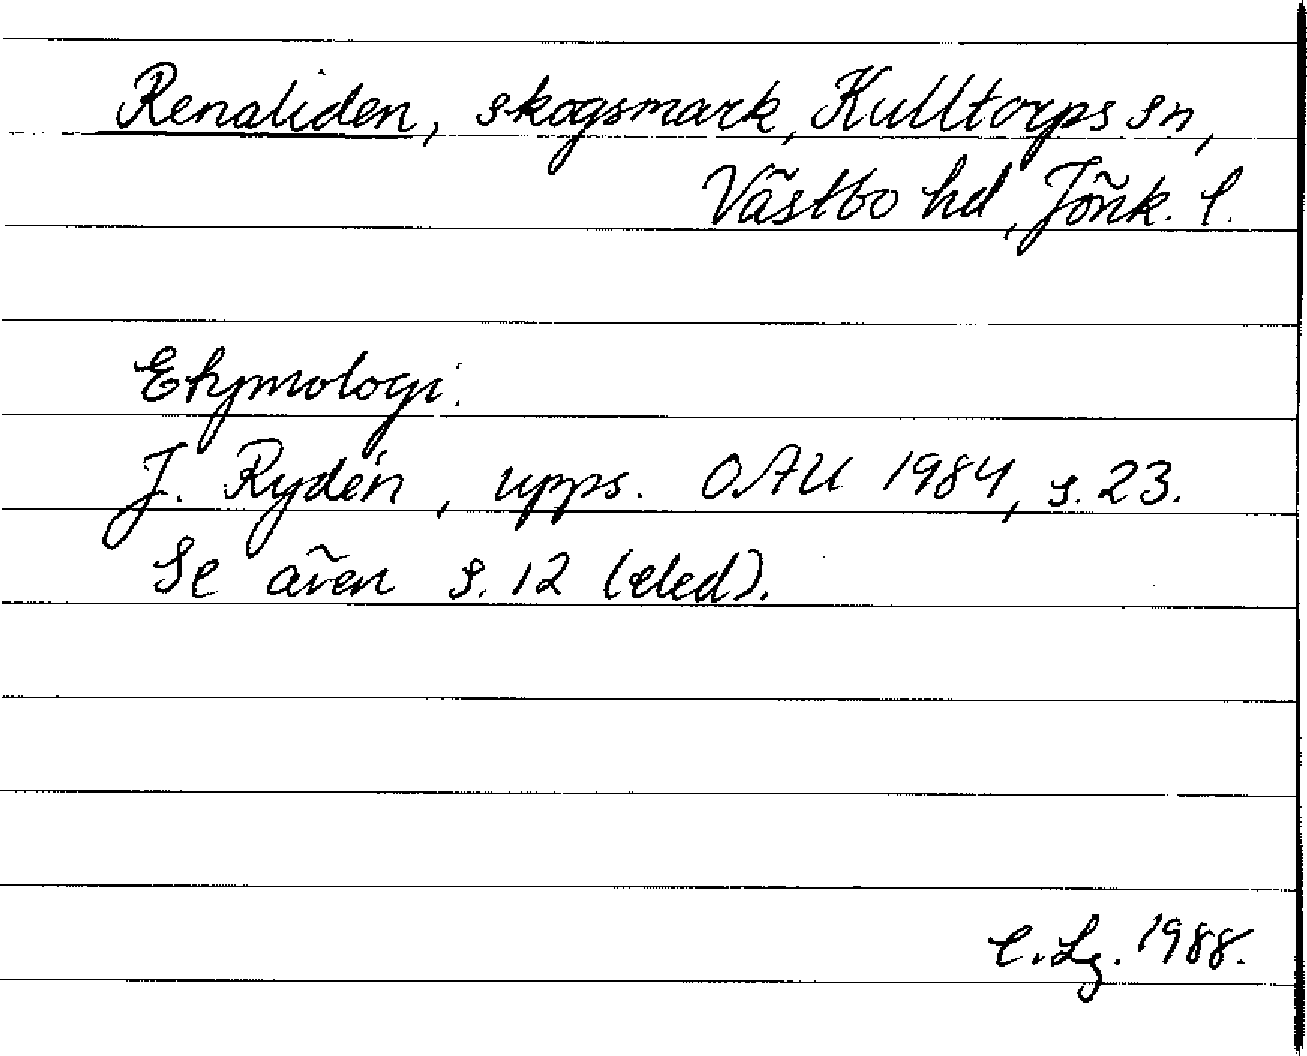 Renaliden, skogsmark, Kulltorps sn,
Västbo hd, Jönk. l.
Etymologi:
J. Rydén, upps. OAU 1984, s. 23.
Se även s. 12 (eled).
C. Lg. 1988.